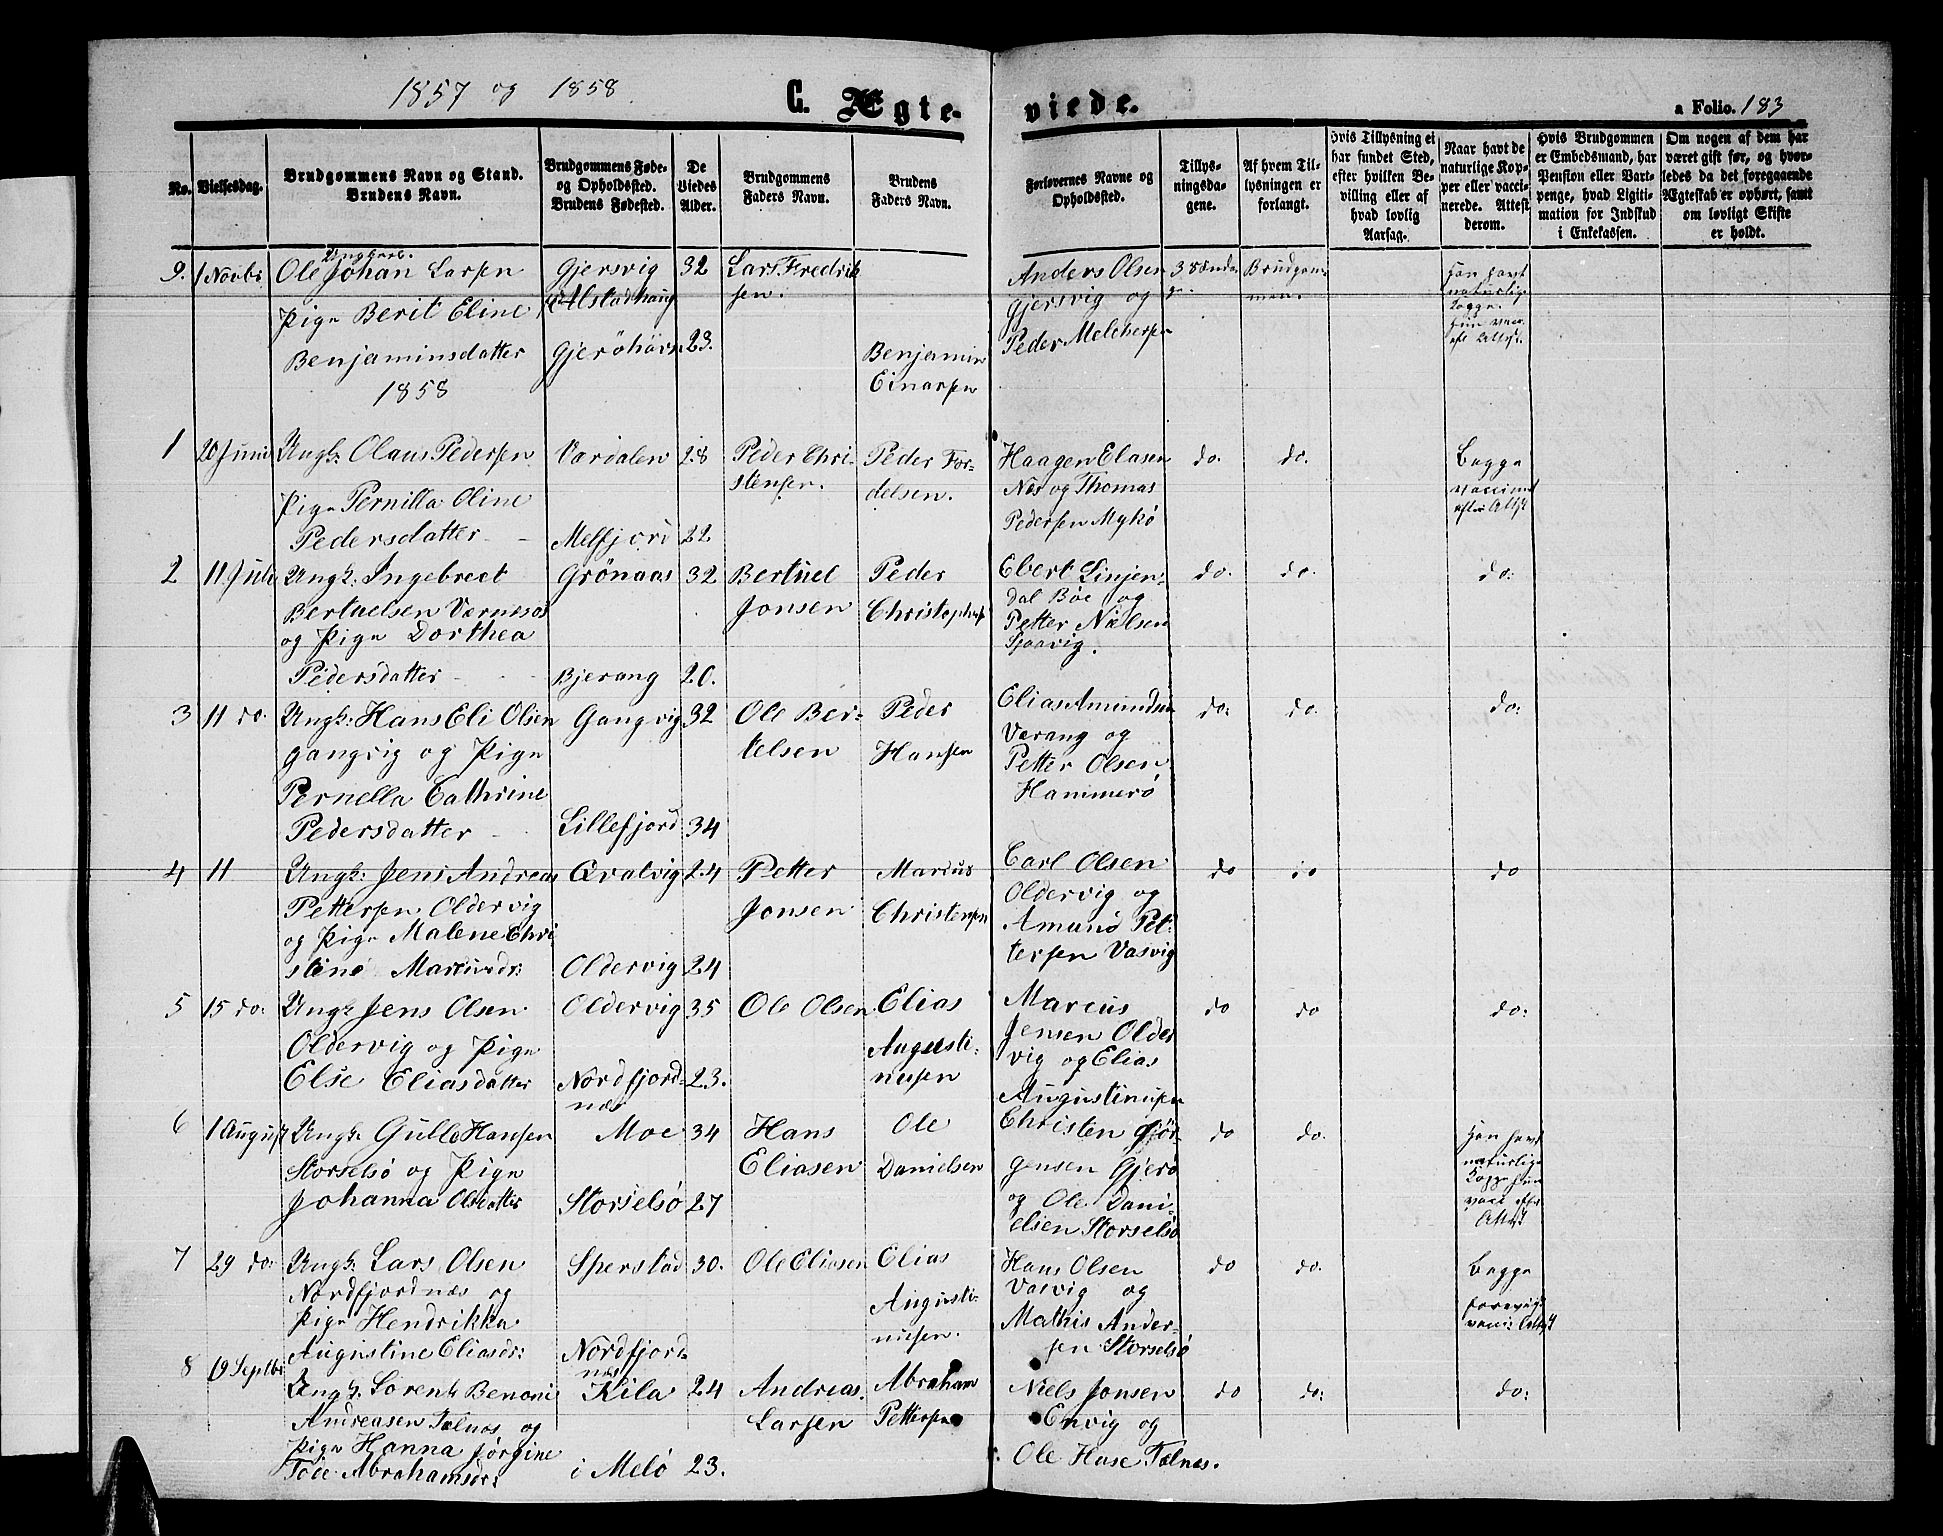 1857 og 1858.
C. Ægte-
viede.
a Folio. 183
No.
Vielsesdag.
Brudgommens Navn og Stand.
Brudens Navn.
Brudgommens Føde-
og Opholdsted.
Brudens Fødested.
De
Viedes
Alder.
Brudgommens
Faders Navn.
Brudens
Faders Navn.
Forlovernes Navne og
Opholdsted.
Tillys-
ningsda-
gene.
Af hvem Til-
lysningen er
forlangt.
Hvis Tillysning ei
har fundet Sted,
efter hvilken Be-
villing eller af
hvad lovlig
Aarsag.
Naar havt de
naturlige Kop-
per eller vacci-
nerede. Attest
derom.
Hvis Brudgommen
er Embedsmand, har
Pension eller Vart-
penge, hvad Ligiti-
mation for Indskud
i Enkekassen.
Om nogen af dem har
været gift før, og hvor-
ledes da det foregaaende
Ægteskab er ophørt, samt
om lovligt Skifte
er holdt.
9. 1 Novbr
Ungkarl.
Ole Johan Larsen
Pige Berit Eline
Benjaminsdatter
Gjersvig
Alstadhaug
Gjeröhavn
32
23.
Lars Fredrik
sen.
Benjamin
Einarsen
Anders Olsen
Gjersvig og
Peder Melchersen
3 Sönda
ge.
Brudgom
men.
Han havt
naturlige
Kopper
hun vacc
eft Attest.
1858
1 20 Juni
Ungk: Olaus Pedersen
Pige Pernilla Oline
Pedersdatter
Værdalen
Melfjord
28
22
Peder Chri-
stensen.
Peder For-
delsen.
Haagen Elasen
Næs og Thomas
Pedersen Mykö
do. do.
Begge
vaccined
efter Attst
2 11 Juli
Ungk: Ingebreet
Bertuelsen Værnesøs
og Pige Dorthea
Pedersdatter
Grönaas
Bjerang
32
20.
Bertuel
Jonsen
Peder
Christophers
Ebert Linjen-
dal Böe og
Petter Nielsen
Spaavig.
do. do. do:
3 11 do.
Ungk: Hans Eli Olsen
gangvig og Pige
Pernella Cathrine
Pedersdatter
Gangvig
Lillefjord
32
34
Ole Ber-
telsen
Peder
Hansen
Elias Amundsen
Værang og
Petter Olsen
Hammerö
do: do. do:
4 11
Ungk: Jens Andreas
Pettersen Oldervig
og Pige Malene Chri
stine Marcusdr:
Qvalvig
Oldervig
24
24
Petter
Jonsen
Marcus
Christensen
Carl Olsen
Oldervig og
Amund Pet-
tersen Vasvig
do do do
5 15 do:
Ungk Jens Olsen
Oldervig og Pige
Else Eliasdatter
Oldervig
Nordfjord-
næs
35
23.
Ole Olsen
Elias
Augusti-
nusen
Marcus
Jensen Older
vig og Elias
Augustinusen
do do do:
6 1 August
Ungk. Gulle Hansen
Storselsö og Pige
Johanna Olsdatter
Moe
Storselsö
34
27
Hans
Eliasen
Ole
Danielsen
Christen Jör-
gensen Gjerö
og Ole Dani-
elsen Storselsö
do do.
Han havt
naturlige
Koppe hun
vacc efter
Attest
7 29 do:
Ungk: Lars Olsen
Nordfjordnæs og
Pige Hendrikka
Augustine Eliasdr:
Sperstad
Nordfjord-
næs
30.
Ole Eliasen
Elias
Augusti-
nusen.
Hans Olsen
Vasvig og
Mathis Ander-
sen Storselsö
do do.
Begge
forevist
vacc: Attest
8 19 Septbr
Ungk. Sörent Benoni
Andreasen Tælnæs og
Pige Hanna Jörgine
Tode Abrahamsdr:
Kila
i Melö
24
23.
Andreas
Larsen
Abraham
Pettersen
Niels Jonsen
Envig og
Ole Hase Tælnæs.
do do: do: